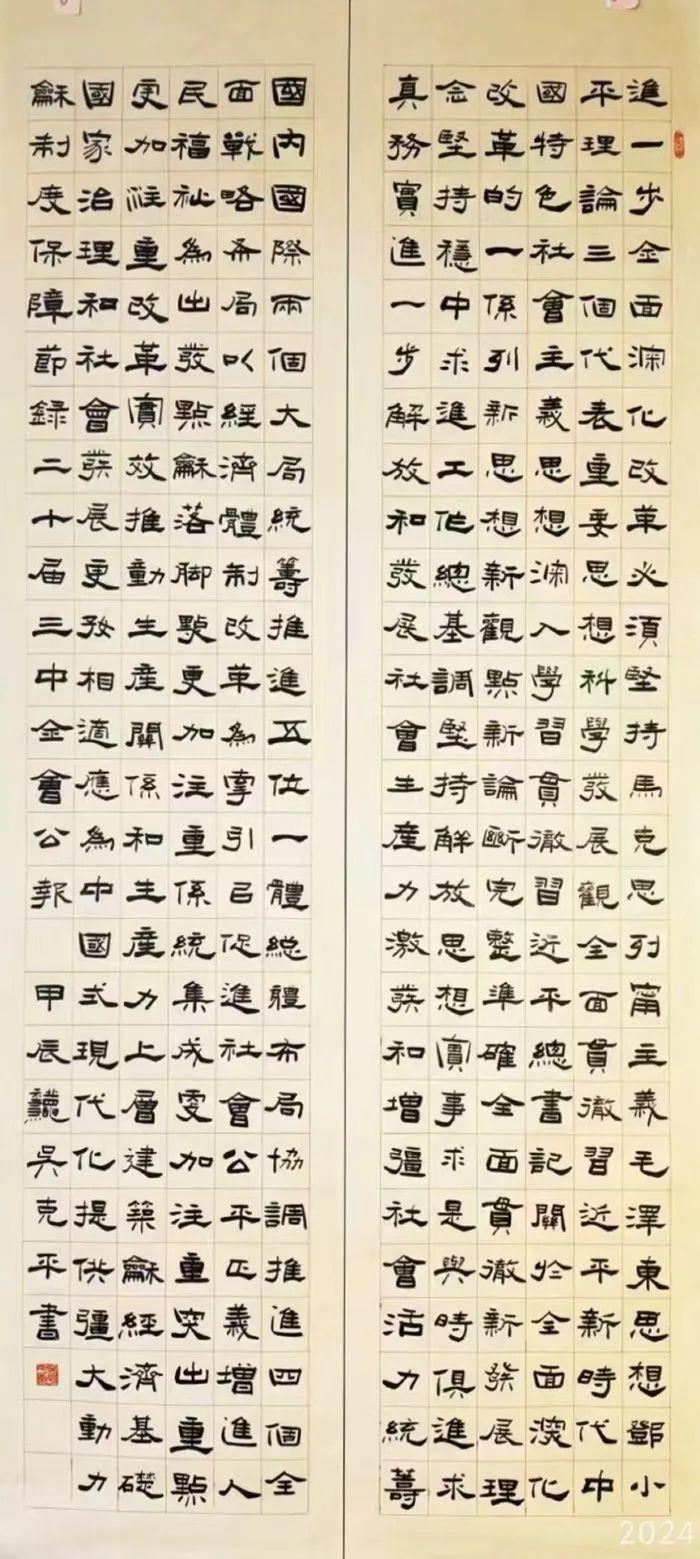 進一步全面深化改革必須堅持馬克思列甯主義毛澤東思想鄧小
平理論三個代表重要思想科學發展觀全面貫徹習近平新時代中
國特色社會主義思想深入學習貫徹習近平總書記關於全面深化
改革的一係列新思想新觀點新論斷完整準確全面貫徹新發展理
念堅持穩中求進工作總基調堅持解放思想實事求是與時俱進求
真務實進一步解放和發展社會生產力激發和增彊社會活力統籌
國內國際兩個大局統籌推進五位一體總體布局協調推進四個全
面戰略布局以經濟體制改革為牽引以促進社會公平正義增進人
民福祉為出發點龢落腳點更加注重係統集成更加注重突出重點
更加注重改革實效推動生產關係和生產力上層建築龢經濟基礎
國家治理和社會發展更好相適應為中國式現代化提供彊大動力
龢制度保障節錄二十屆三中全會公報 甲辰吳克平書
2024